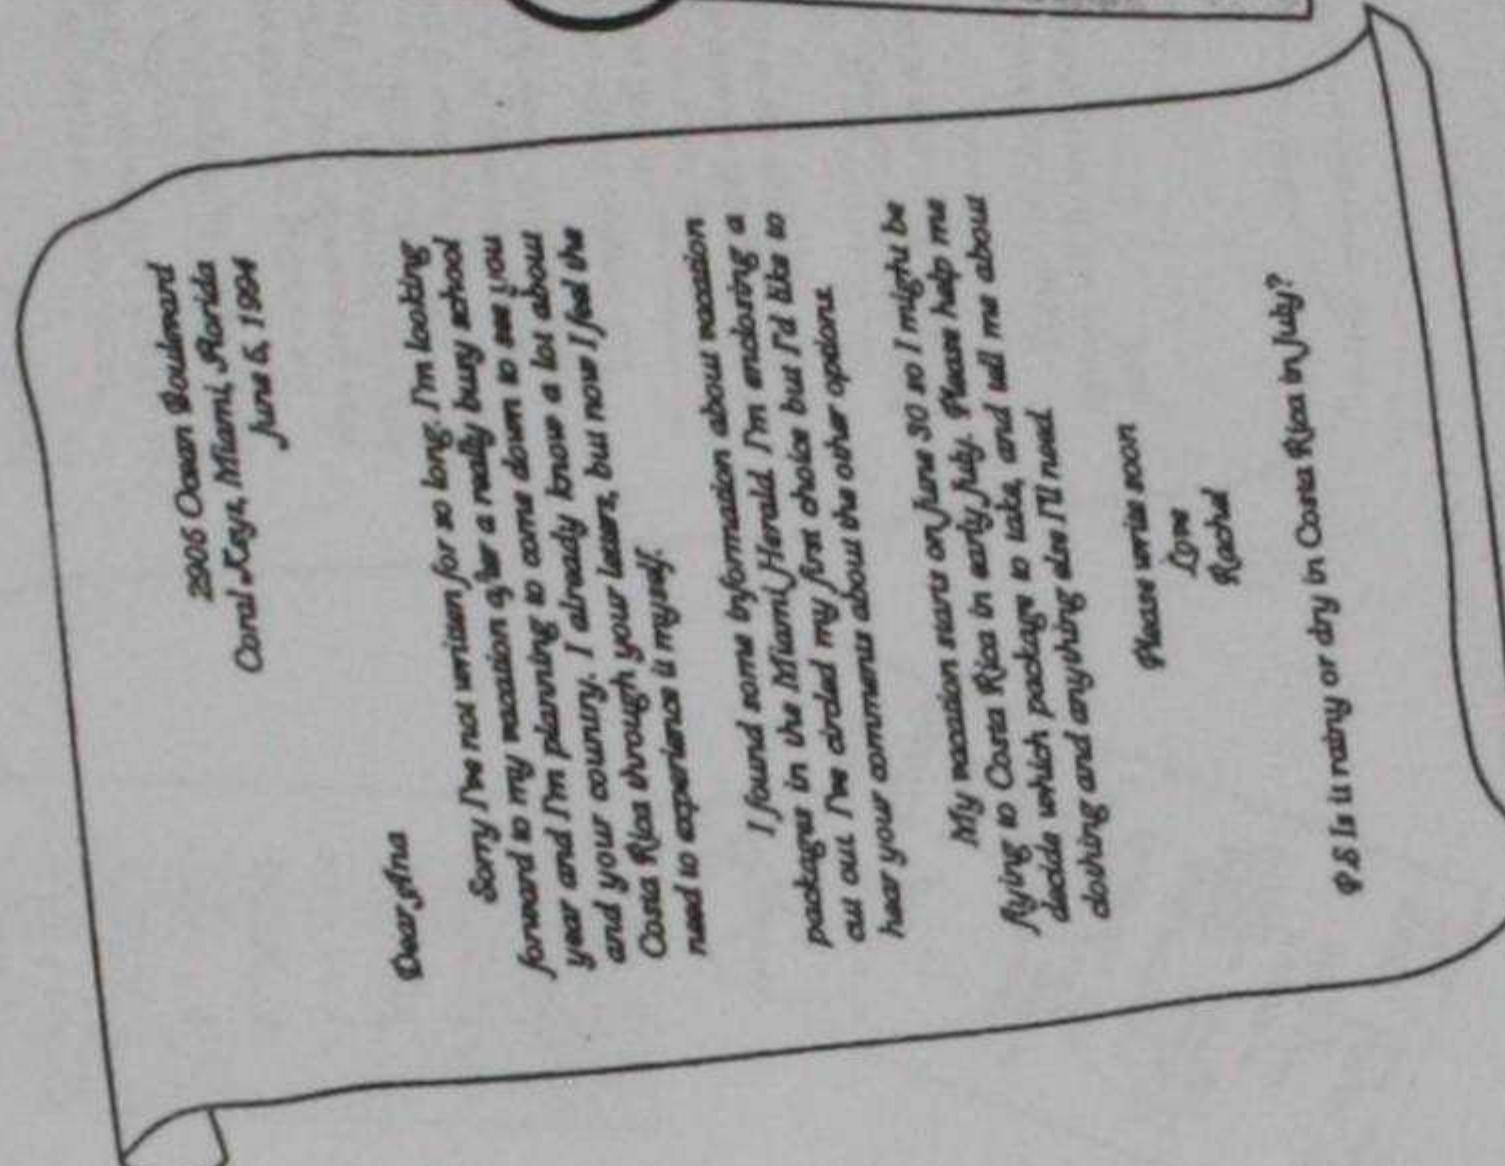 2906 Ocean Boulevard
Coral Keys, Miami, Florida
June 6, 1994
Dear Ana
Sorry I've not written for so long. I'm looking
forward to my vacation after a really busy school
year and I'm planning to come down to see you
and your country. I already know a lot about
Costa Rica through your letters, but now I feel the
need to experience it myself.
I found some information about vacation
packages in the Miami Herald. I'm enclosing a
cut out. I've circled my first choice but I'd like to
hear your comments about the other options.
My vacation starts on June 30 so I might be
flying to Costa Rica in early July. Please help me
decide which package to take, and tell me about
clothing and anything else I'll need.
Please write soon
Love
Rachel
P.S Is it rainy or dry in Costa Rica in July?